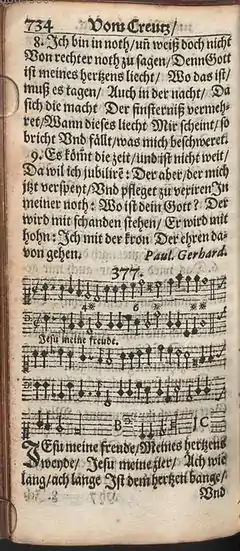 734 Vom Creutz/
8. Ich bin in noth/uñ weiß doch nicht
Von rechter noth zu sagen/ Denn Gott
ist meines hertzens liecht/ Wo das ist/
muß es tagen/ Auch in der nacht/ Da
sich die macht Der finsterniß vermeh-
ret/ Wann dieses liecht Mir scheint/ so
bricht Vnd fällt/was mich beschweret.
9. Es kömt die zeit/ und ist nicht weit/
Da wil ich jubilirē: Der aber/der mich
jtzt verspeyt/ Vnd pfleget zu vexiren In
meiner noth: Wo ist dein Gott? Der
wird mit schanden stehen/ Er wird mit
hohn: Ich mit der kron Der ehren da-
von gehen. Paul. Gerhard.
377.
4* 6 **
Jesu meine freude.
B C
JEsu meine freude/ Meines hertzens
weyde/ Jesu meine zier/ Ach wie
lang/ach lange Ist dem hertzen bange/
Vnd